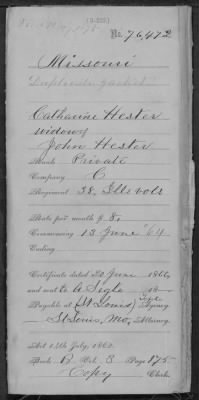 (3-223)
No. 76,472
Missouri
Catharine Hester
widow of
John Hester
Rank Private
Company C
Regiment 38. Ills vols
Rate per month $8.
Commencing 13 June '64
Ending
Certificate dated 20 June 1866
and sent to A Sigle
Payable at (St Louis) Agency
St Louis, Mo, Attorney,
Act 14th July, 1862.
Book B. Vol. 3 Page 175
Copy Clerk.